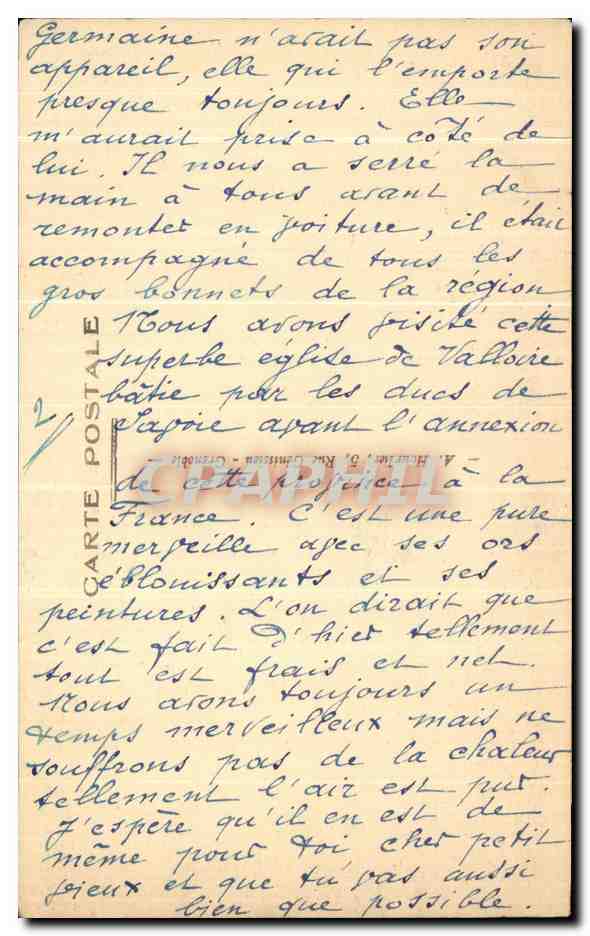 Germaine n'avait pas son
appareil, elle qui l'emporte
presque toujours. Elle
m'aurait prise à côté de
lui. Il nous a serré la
main à tous avant de
remonter en voiture, il était
accompagné de tous les
gros bonnets de la région
Nous avons visité cette
superbe église de Valloire
bâtie par les ducs de
Savoie avant l'annexion
de cette province à la
France. C'est une pure
merveille avec ses ors
éblouissants et ses
peintures. L'on dirait que
c'est fait d'hier tellement
tout est frais et net.
Nous avons toujours un
temps merveilleux mais ne
souffrons pas de la chaleur
tellement l'air est pur.
J'espère qu'il en est de
même pour toi, cher petit
vieux et que tu vas aussi
bien que possible.
2/
CARTE POSTALE
Grenoble
CPAPHIL